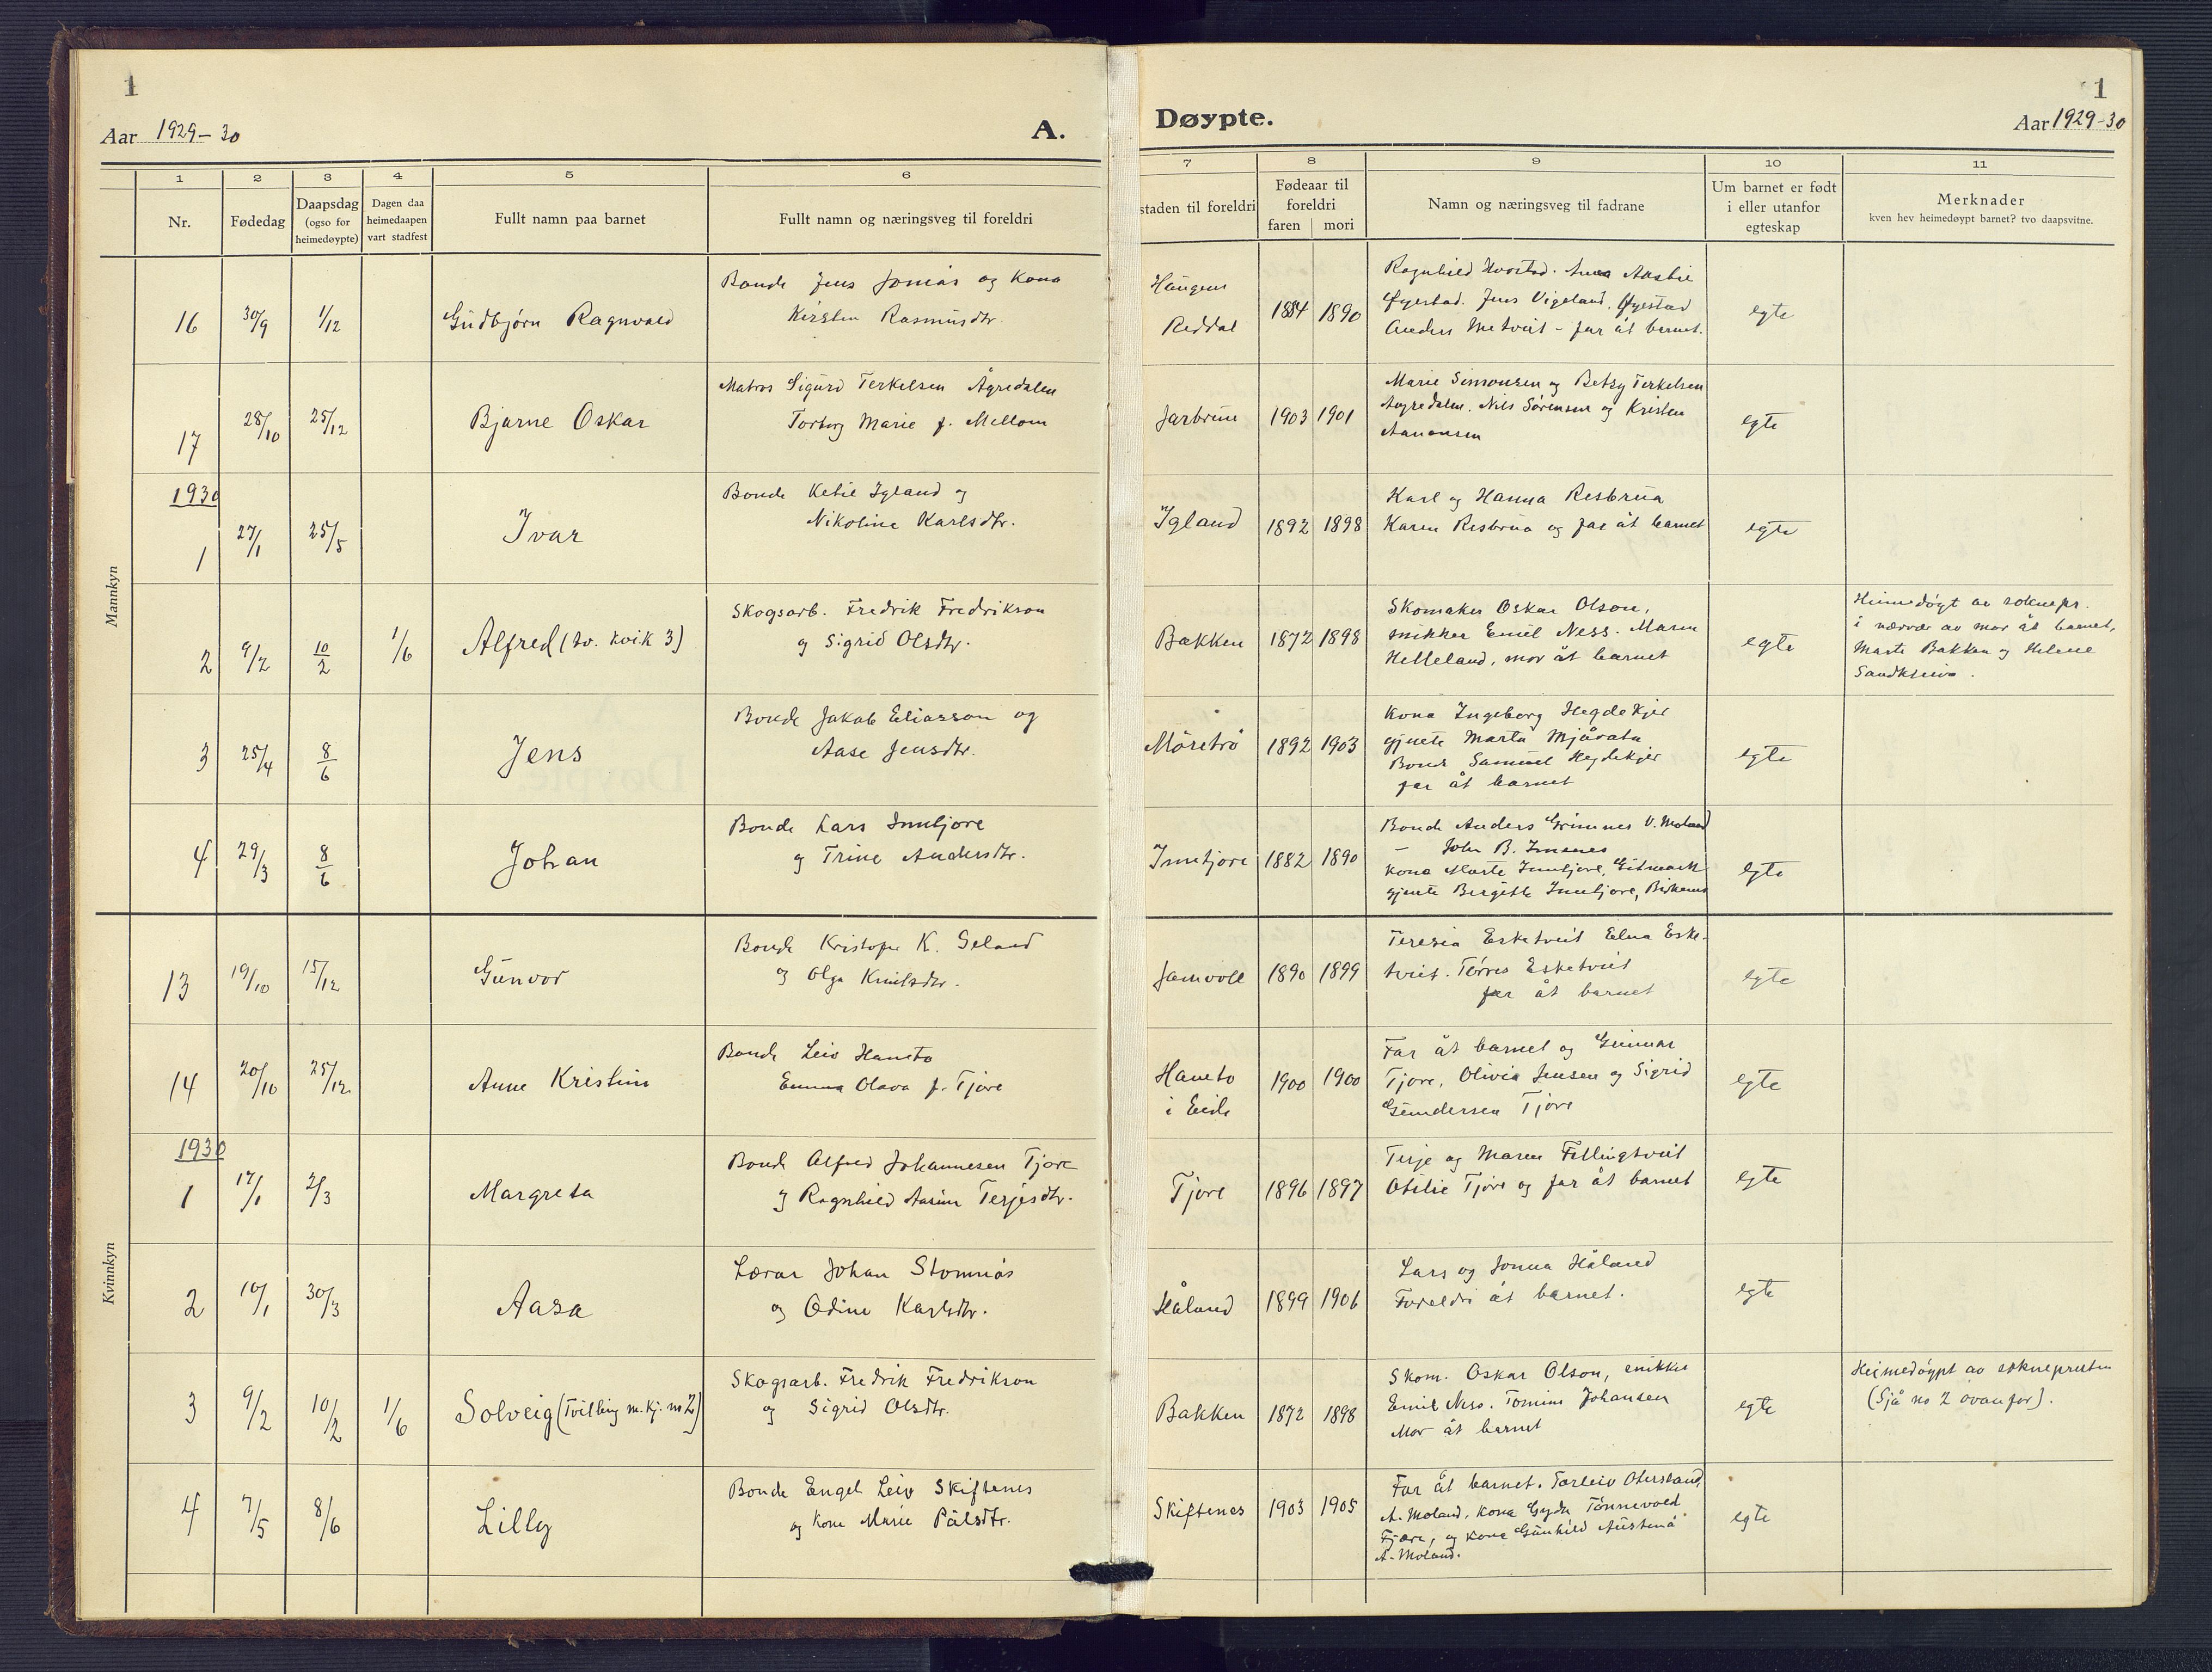 1
Aar 1929–30
A.
1 2 3 4 5 6
Nr.
Fødedag
Daapsdag
(ogso for
heimedøypte)
Dagen daa
heimedaapen
vart stadfest
Fullt namn paa barnet
Fullt namn og næringsveg til foreldri
Mannkyn
16 30/9 1/12 Gudbjørn Ragnvald
Bonde Jens Jomås og kona
Kirsten Rasmusdtr.
17 28/10 25/12 Bjarne Oskar
Matros Sigurd Terkelsen Ågredalen
Torborg Marie f. Mellom
1930
1 27/1 25/5 Ivar
Bonde Ketil Igland og
Nikoline Karlsdtr.
2 9/2 10/2 1/6 Alfred (tv. kvik 3)
Skogsarb. Fredrik Fredrikson
og Sigrid Olsdtr.
3 25/4 8/6 Jens
Bonde Jakob Eliasson og
Aase Jensdtr.
4 29/3 8/6 Johan
Bonde Lars Inntjore
og Trine Andersdtr.
Kvinnkyn
13 19/10 15/12 Gunvor
Bonde Kristofer K. Geland
og Olga Knutsdtr.
14 20/10 25/12 Anne Kristine
Bonde Leiv Haneto
Emma Olava f. Tjore
1930
1 17/1 2/3 Margreta
Bonde Alfred Johannesen Tjore
og Ragnhild Terjesdtr.
2 10/1 30/3 Aasa
Lærar Johan Stomnås
og Odine Karlsdtr.
3 9/2 10/2 1/6 Solveig (Tvilling m. kj. no 2)
Skogsarb. Fredrik Fredrikson
og Sigrid Olsdtr.
4 7/5 8/6 Lilly
Bonde Engel Leiv Skiftenes
og kona Marie Pålsdtr.
1
Døypte.
Aar 1929–30
7 8 9 10 11
staden til foreldri
Fødeaar til
foreldri
faren mori
Namn og næringsveg til fadrane
Um barnet er født
i eller utanfor
egteskap
Merknader
kven hev heimedøypt barnet? tvo daapsvitne.
Haugen
Reddal
1884 1890
Ragnhild Hovstad. Anna
Øyestad. Jens Vigeland, Øyestad
Anders – far åt barnet.
egte
Jarbrun 1903 1901
Marie Simonsen og Betzy Terkelsen
Aagredalen. Nils Sørensen og Kristen
Aanonsen
egte
Igland 1892 1898
Karl og Hanna Resbrua
Karen Resbrua og far åt barnet
egte
Bakken 1872 1898
Skomaker Oskar Olson,
snikkar Emil Ness. Maren
Helleland, mor åt barnet
egte
Heimedøypt av soknepr.
i nærvær av mor åt barnet,
Marte Bakken og Helene
Sandkleiva.
Møretrø 1892 1903
Kona Ingeborg Hegdekjer
gjente Marta Mjåvatn
Bonde Samuel Hegdekjer
far åt barnet
egte
Inntjore 1882 1890
Bonde Anders Grimnes V. Moland
– John B. Imenes
kona Marte Inntjore,
gjente Birgitte Inntjore, Birkenes
egte
Jamvoll 1890 1899
Teresia Esketveit Elna Eske-
tveit. Tørres Esketveit
far åt barnet
egte
Haneto
i Eide
1900 1900
Far åt barnet og Gunnar
Tjore, Olivia Jensen og Sigrid
Gundersen Tjore
egte
Tjore 1896 1897
Terje og Maren Fillingtveit
Otilie Tjore og far åt barnet
egte
Håland 1899 1906
Lars og Jonna Håland
Foreldri åt barnet.
egte
Bakken 1872 1898
Skom. Oskar Olson, snikkar
Emil Ness. Tomine Johansen
Mor åt barnet
egte
Heimedøypt av soknepresten
(Sjå no 2 ovanfor).
Skiftenes 1903 1905
Far åt barnet. Torleiv Otersland,
A. Moland, kona Gyda Tønnevold
Fjære, og kona Gunhild Austenå
A. Moland.
egte